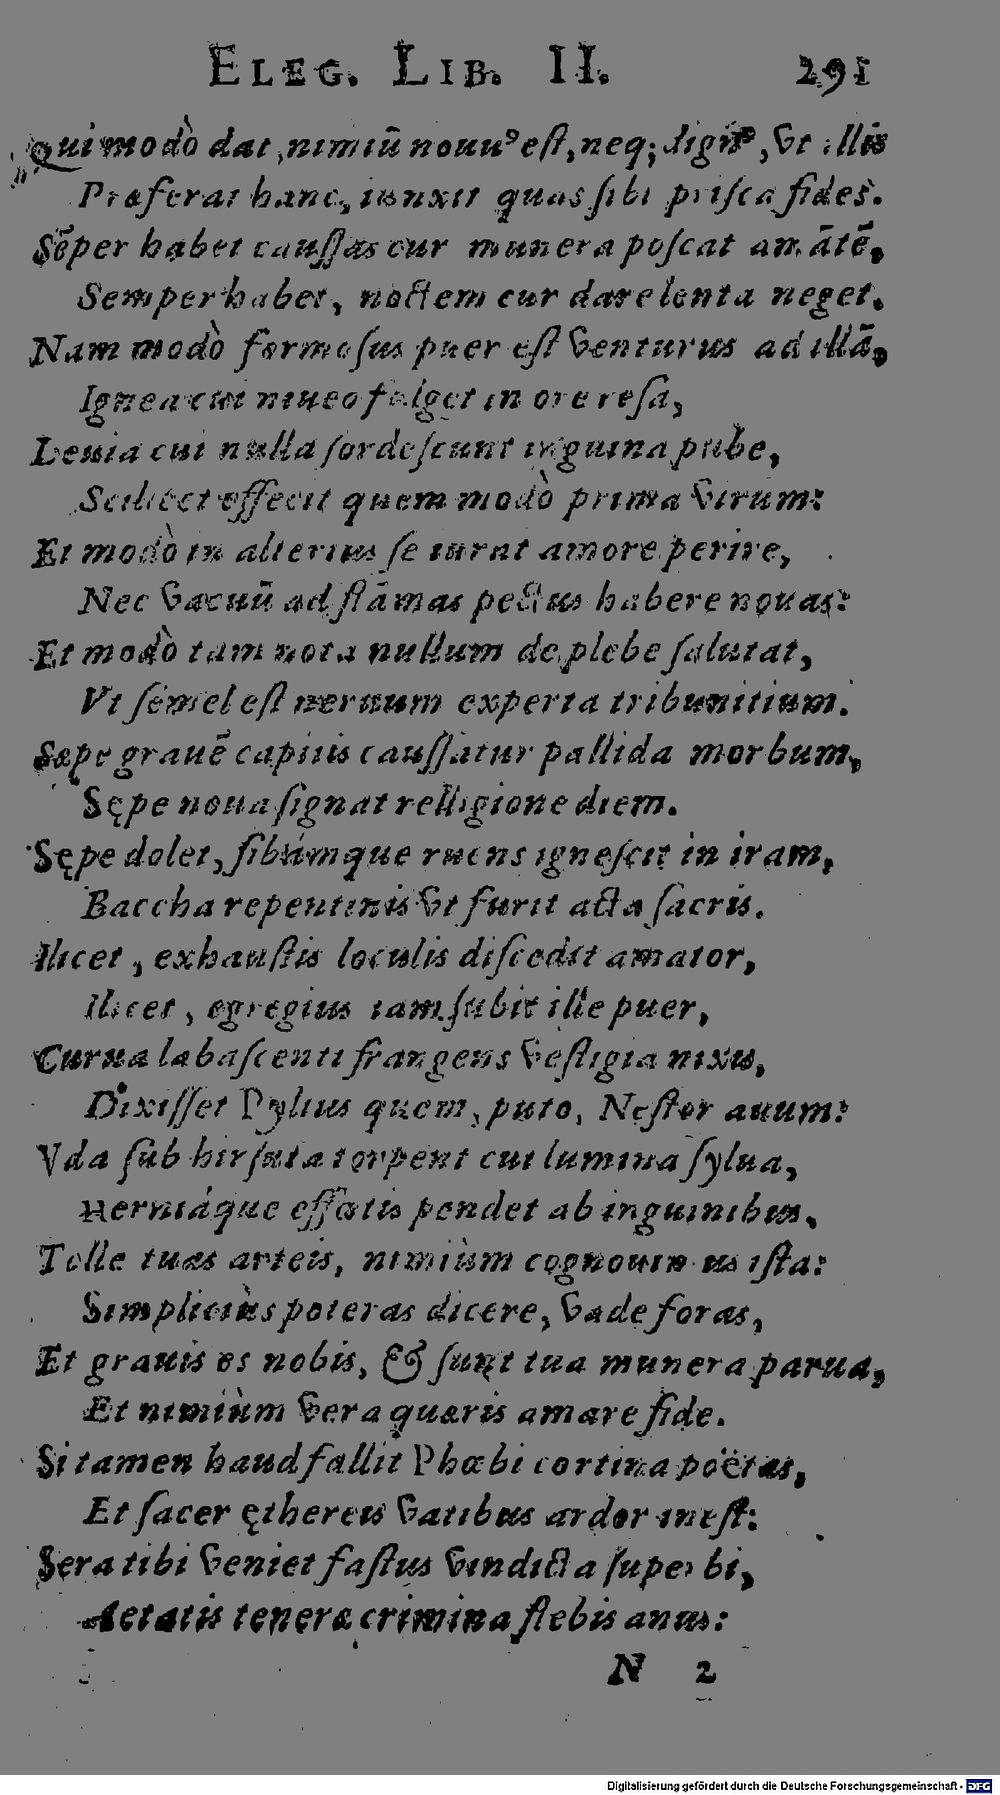 ELEG. LIB. II. 291
Qui modò dat, nimiū nouus est, neq; dignus, vt illis
Præferat hanc, iunxit quos sibi prisca fides.
Sēper habet caussas cur munera poscat amātē,
Semper habet, noctem cur dare lenta neget.
Nam modò formosus puer est venturus ad illā,
Ignea cui niueo fulget in ore rosa,
Leuia cui nulla sordescunt inguina pube,
Scilicet effecit quem modò prima virum:
Et modò in alterius se iurat amore perire,
Nec vacuū ad flāmas pectus habere nouas:
Et modò tam nota nullum de plebe salutat,
Vt semel est neruum experta tribunitium.
Sæpe grauē capitis caussatur pallida morbum,
Sępe noua signat relligione diem.
Sępe dolet, subitámque ruens ignescit in iram,
Baccha repentinis vt furit acta sacris.
Ilicet, exhaustis loculis discedit amator,
Ilicet, egregius iam subit ille puer,
Curua labascenti frangens vestigia nixu,
Dixisset Pylius quem, puto, Nestor auum:
Vda sub hirsuta torpent cui lumina sylua,
Herniáque effœtis pendet ab inguinibus.
Tolle tuas arteis, nimiùm cognouimus ista:
Simpliciùs poteras dicere, vade foras,
Et grauis es nobis, & sunt tua munera parua,
Et nimiùm vera quæris amare fide.
Si tamen haud fallit Phœbi cortina poëtas,
Et sacer ęthereis vatibus ardor inest:
Sera tibi veniet fastus vindicta superbi,
Aetatis teneræ crimina flebis anus:
N 2
Digitalisierung gefördert durch die Deutsche Forschungsgemeinschaft - DFG